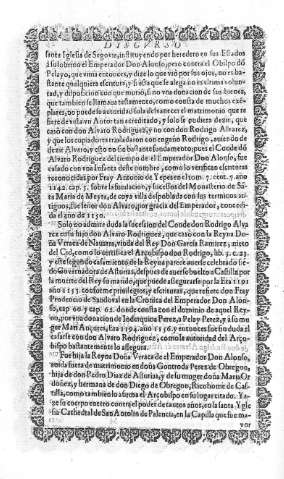 DISCVRSO
santa Iglesia de Segovia, instituyendo por heredero en sus Estados
à su sobrino el Emperador Don Alonso, pero contra el Obispo dō
Pelayo, que vivia entonces, y dize lo que vió por sus ojos, no es bastante
qualquiera escritura, y si esta que se alega no es vltima voluntad,
y disposicion con que murió, si no vna donacion de sus bienes,
que tambien se llamava testamento, como consta de muchos exemplares,
no puede su autoridad sola deshazer el matrimonio que refiere
de vista vn Autor tan acreditado, y solo se pudiera dezir, que
casò con don Alvaro Rodriguez, y no con don Rodrigo Alvarez,
y que los copiadores trasladaron con engaño Rodrigo, aviendo
desde Alvaro, esto no es bastante fundamento, pues el Conde dō
Alvaro Rodriguez del tiempo de el Emperador Don Alonso, fue
casado con vna Infanta deste nombre, como lo verifican clamores
reconocidas por Fray Antonio de Yepes en el tom. 7. cent. 7. año
1142. cap. 3. sobre la fundacion, y sucessos del Monasterio de Sāta
Maria de Meyra, de cuya villa despoblada con sus terminos antiguos,
fue señor don Alvaro, por gracia del Emperador, concedida
el año de 1130.
Solo no admite duda la sucession del Conde don Rodrigo Alvarez
en su hijo don Alvaro Rodriguez, que casò con la Reyna Doña
Vrraca de Navarra, viuda del Rey Don Garcia Ramirez, nieto
del Cid, como lo certifica el Arçobispo don Rodrigo, lib. 5. c. 23.
y este segundo casamiento de la Reyna parece averse celebrado siendo
Governadora de Asturias, despues de averse buelto a Castilla por
la muerte del Rey su marido, que puede assegurarse por la Era 1191
año 1153. conforme privilegios, y escrituras, que refiere don Fray
Prudencio de Sandoval en la Cronica del Emperador Don Alonso,
cap. 60. y cap. 65. donde consta con el dominio de aquel Reyno,
por vna donacion de Iodesquita Perez, a Pelay Perez, à su muger
Mari Anyares, Era 1194. año 1156. y entonces fue sin duda el
casarse con don Alvaro Rodriguez, como la autoridad del Arçobispo
bastantemente lo assegura.
Fue hija la Reyna Doña Vrraca de el Emperador Don Alonso,
avida fuera de matrimonio en doña Gontroda Perez de Obregon,
hija de don Pedro Diaz de Asturias, y de su muger doña Maria Ordoñez,
y hermana de don Diego de Obregon, Ricohome de Castilla,
como tambien lo afirma el Arçobispo en su lugar citado. Yaze
su cuerpo entero contra el poder de tantos años, en la santa Yglesia
Cathedral de San Antolin de Palencia, en la Capilla que fue mayor
yor